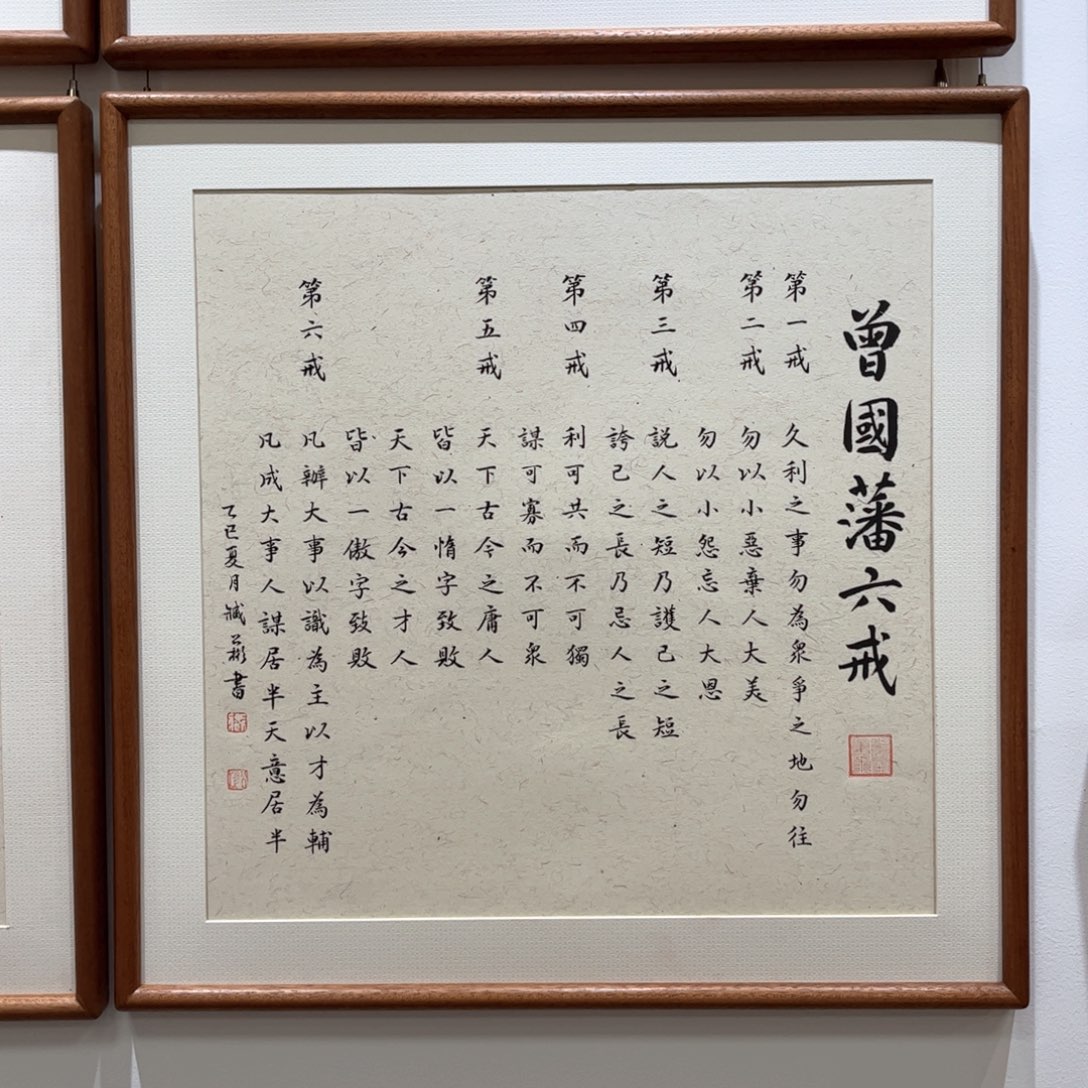 曾國藩六戒
第一戒 久利之事勿為衆爭之地勿往
第二戒 勿以小惡棄人大美
勿以小怨忘人大恩
第三戒 説人之短乃護己之短
誇己之長乃忌人之長
第四戒 利可共而不可獨
謀可寡而不可衆
第五戒 天下古今之庸人
皆以一惰字致敗
天下古今之才人
皆以一傲字致敗
第六戒 凡辦大事以識為主以才為輔
凡成大事人謀居半天意居半
乙巳夏月 書